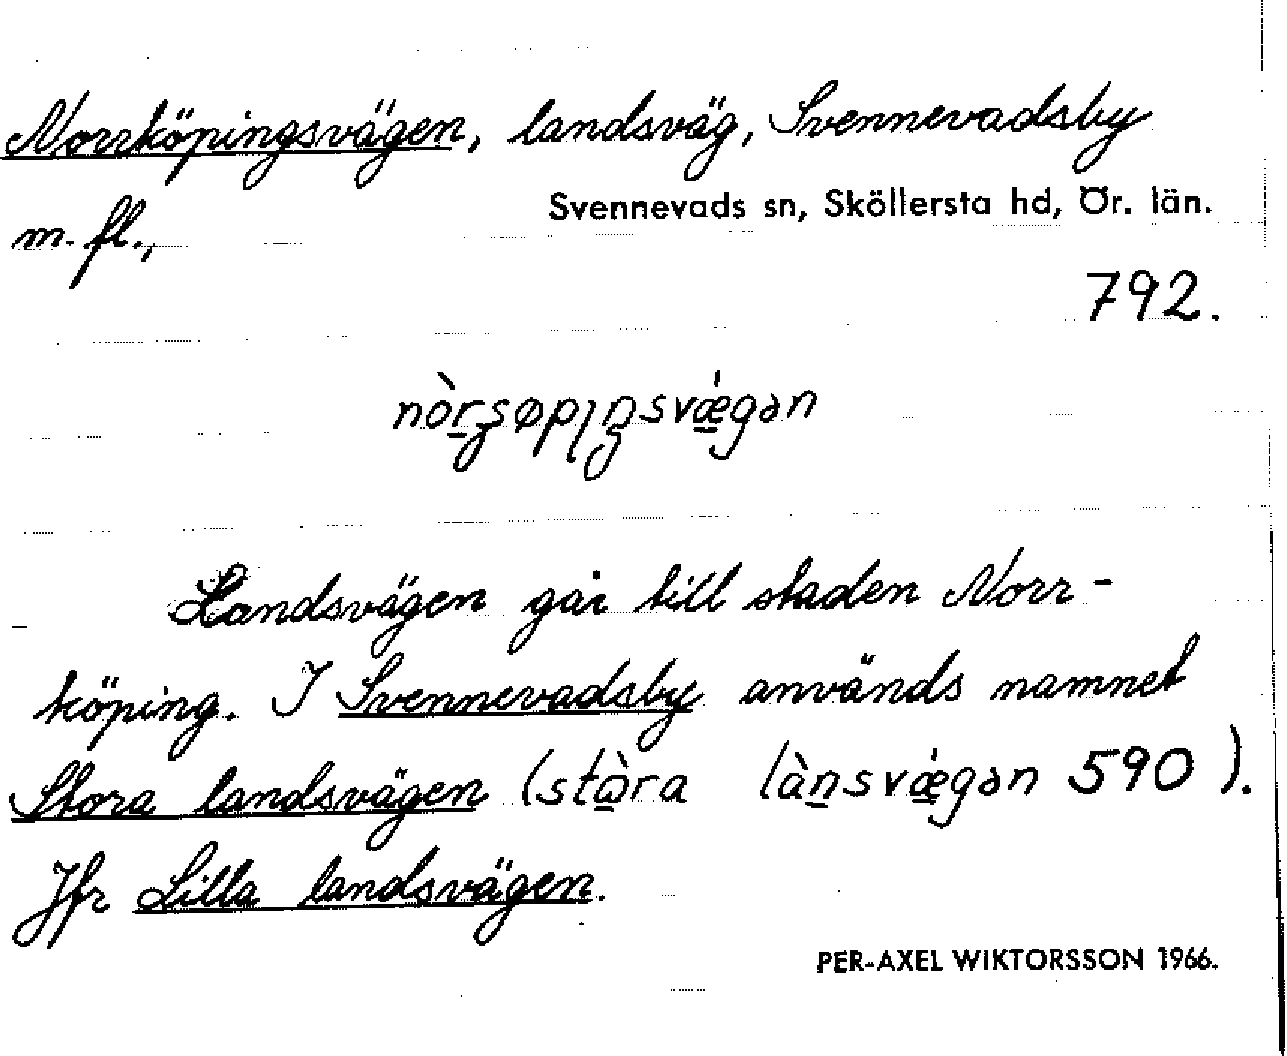 Norrköpingsvägen, landsväg, Svennevadsby
m. fl.,
Svennevads sn, Sköllersta hd, Ör. län.
792.
Landsvägen går till staden Norr-
köping. I Svennevadsby används namnet
Stora landsvägen (stò̲ra làn̲svǽ̲gən 590).
Jfr Lilla landsvägen.
PER-AXEL WIKTORSSON 1966.